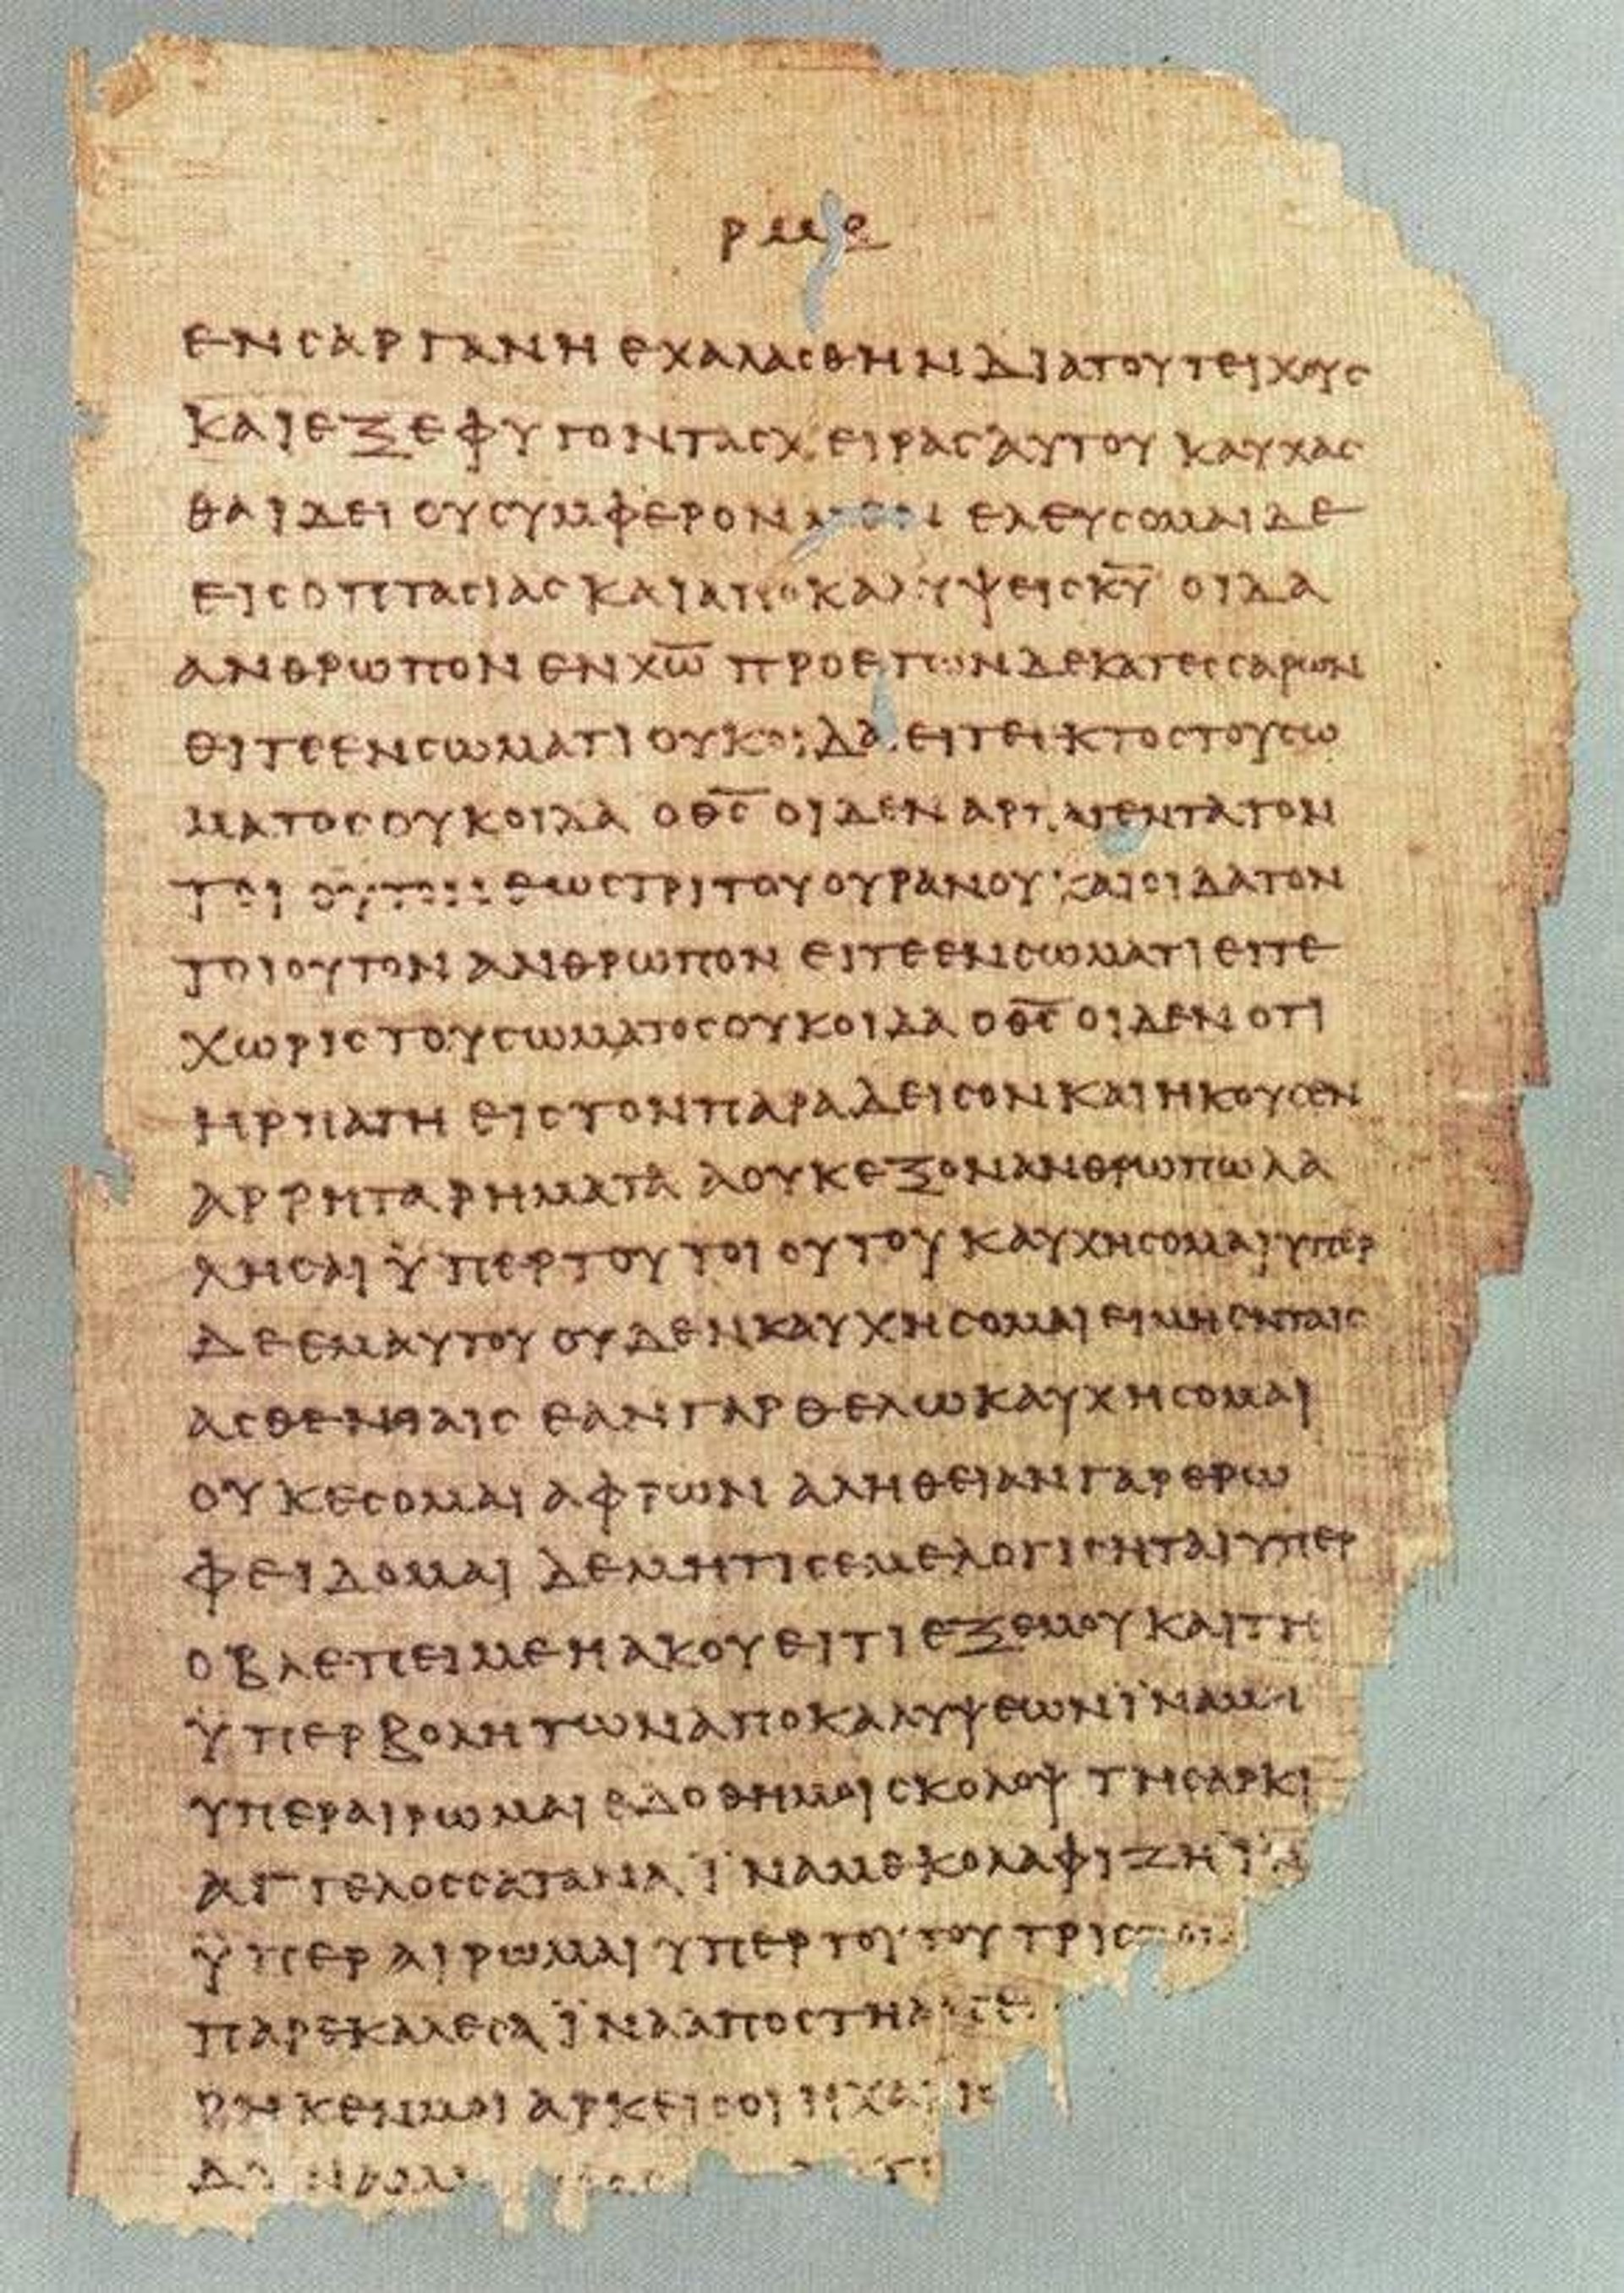 ρμε
ΕΝ CΑΡΓΑΝΗ ΕΧΑΛΑCΘΗΝ ΔΙΑ ΤΟΥ ΤΕΙΧΟΥC
ΚΑΙ ΕΞΕΦΥΓΟΝ ΤΑC ΧΕΙΡΑC ΑΥΤΟΥ ΚΑΥΧΑC
ΘΑΙ ΔΕΙ ΟΥ CΥΜΦΕΡΟΝ ΕΛΕΥCΟΜΑΙ ΔΕ
ΕΙC ΟΠΤΑCΙΑC ΚΑΙ ΑΠΟΚΑΛΥΨΕΙC Κ̅Υ̅ ΟΙΔΑ
ΑΝΘΡΩΠΟΝ ΕΝ Χ̅Ω̅ ΠΡΟ ΕΤΩΝ ΔΕΚΑΤΕCCΑΡΩΝ
ΕΙΤΕ ΕΝ CΩΜΑΤΙ ΟΥΚ ΟΙΔΑ ΕΙΤΕ ΕΚΤΟC ΤΟΥ CΩ
ΜΑΤΟC ΟΥΚ ΟΙΔΑ Ο Θ̅C̅ ΟΙΔΕΝ ΑΡΠΑΓΕΝΤΑ ΤΟΝ
ΤΟΙΟΥΤΟΝ ΕΩC ΤΡΙΤΟΥ ΟΥΡΑΝΟΥ ΚΑΙ ΟΙΔΑ ΤΟΝ
ΤΟΙΟΥΤΟΝ ΑΝΘΡΩΠΟΝ ΕΙΤΕ ΕΝ CΩΜΑΤΙ ΕΙΤΕ
ΧΩΡΙC ΤΟΥ CΩΜΑΤΟC ΟΥΚ ΟΙΔΑ Ο Θ̅C̅ ΟΙΔΕΝ ΟΤΙ
ΗΡΠΑΓΗ ΕΙC ΤΟΝ ΠΑΡΑΔΕΙCΟΝ ΚΑΙ ΗΚΟΥCΕΝ
ΑΡΡΗΤΑ ΡΗΜΑΤΑ Α ΟΥΚ ΕΞΟΝ ΑΝΘΡΩΠΩ ΛΑ
ΛΗCΑΙ ΫΠΕΡ ΤΟΥ ΤΟΙΟΥΤΟΥ ΚΑΥΧΗCΟΜΑΙ ΥΠΕΡ
ΔΕ ΕΜΑΥΤΟΥ ΟΥΔΕΝ ΚΑΥΧΗCΟΜΑΙ ΕΙ ΜΗ ΕΝ ΤΑΙC
ΑCΘΕΝΙΑΙC ΕΑΝ ΓΑΡ ΘΕΛΩ ΚΑΥΧΗCΟΜΑΙ
ΟΥΚ ΕCΟΜΑΙ ΑΦΡΩΝ ΑΛΗΘΕΙΑΝ ΓΑΡ ΕΡΩ
ΦΕΙΔΟΜΑΙ ΔΕ ΜΗ ΤΙC ΕΜΕ ΛΟΓΙCΗΤΑΙ ΥΠΕΡ
Ο ΒΛΕΠΕΙ ΜΕ Η ΑΚΟΥΕΙ ΤΙ ΕΞ ΕΜΟΥ ΚΑΙ ΤΗ
ΫΠΕΡΒΟΛΗ ΤΩΝ ΑΠΟΚΑΛΥΨΕΩΝ ΪΝΑ ΜΗ
ΥΠΕΡΑΙΡΩΜΑΙ ΕΔΟΘΗ ΜΟΙ CΚΟΛΟΨ ΤΗ CΑΡΚΙ
ΑΓΓΕΛΟC CΑΤΑΝΑ ΪΝΑ ΜΕ ΚΟΛΑΦΙΖΗ
ΫΠΕΡΑΙΡΩΜΑΙ ΥΠΕΡ ΤΟΥΤΟΥ ΤΡΙC
ΠΑΡΕΚΑΛΕCΑ ΪΝΑ ΑΠΟCΤΗ
ΡΗΚΕΝ ΜΟΙ ΑΡΚΕΙ CΟΙ Η ΧΑΡΙC